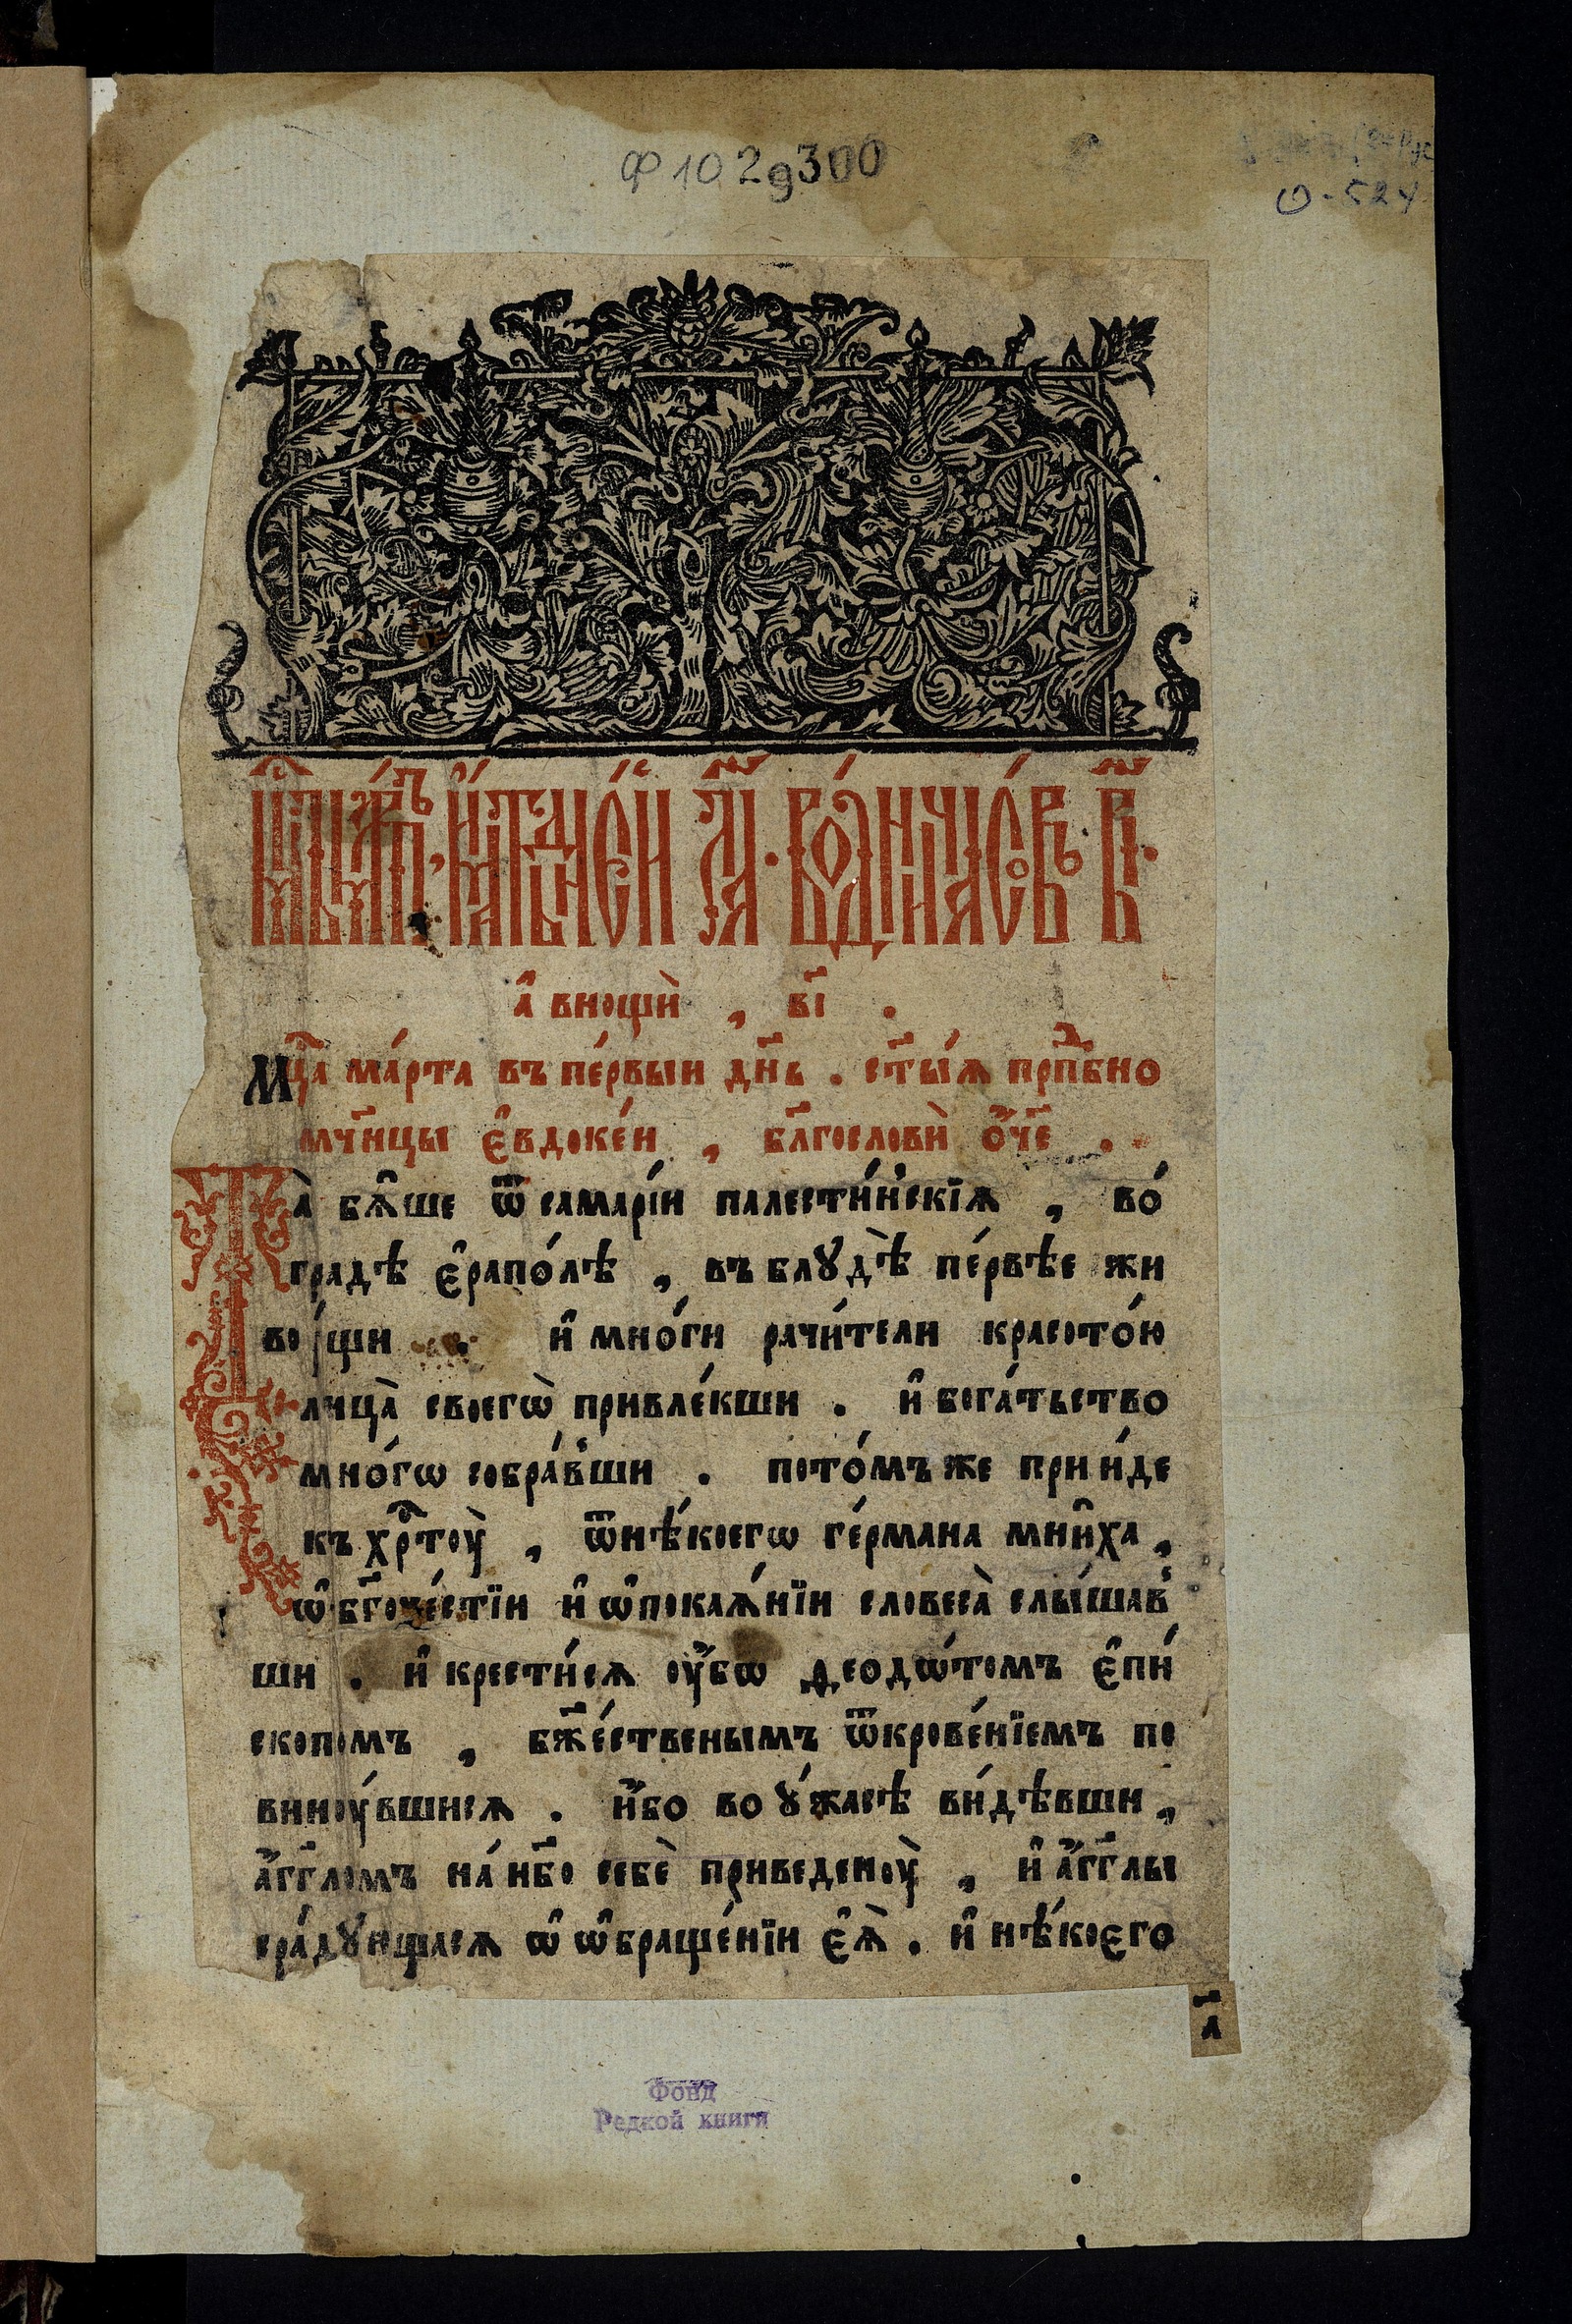 Ф 10 2д300
О-524
Мц҇ъ ма́ртъ, и҆мать дні́й л҃а. в̾ дни́ часо́въ в҃і.
а҆ внощѝ , в҃і .
Мцⷭ҇а ма́рта въ пе́рвыи дн҃ь . ст҃ы́ѧ прпⷣбно
мч҃нцы є҆вдоке́и , бл҃гословѝ ѻ҆́ч҃е .
Та̀ бѧ̑ше ѿ самарі́и палести́н̾скїѧ , во́
градѣ є҆рапо́лѣ , въ блꙋдѣ̀ пе́рвѣе жи
во́щи . и҆ мно́ги рачи́тели красото́ю
лица̀ своегѡ̀ привле́кши . и҆ бога́тьство
мно́гѡ собра́в̾ши . пото́мъ же прии́де
къ хрⷭ҇тоу̀ , ѿ нѣ́коегѡ ге́рмана мни́ха ,
ѡ҆ бл҃гоче́стїи и҆ ѡ҆ покаѧ́нїи словеса̀ слы́шав̾
ши . и҆ крести́сѧ оу҆́бѡ деодѡ́томъ є҆пи́
скопомъ , бж҃е́ственымъ ѿкрове́нїемъ по
виноу́вшисѧ . и҆́бо во ᲂу́жасѣ ви́дѣвши ,
а҆́гг҃ломъ на́ нб҃о себѐ приведеноу̀ , и҆ а҆́гг҃лы
сра́дꙋющасѧ ѡ҆ ѡ҆браще́нїи є҆ѧ̀ . и҆ нѣ́коего
а҃
Фонд
Редкой книги